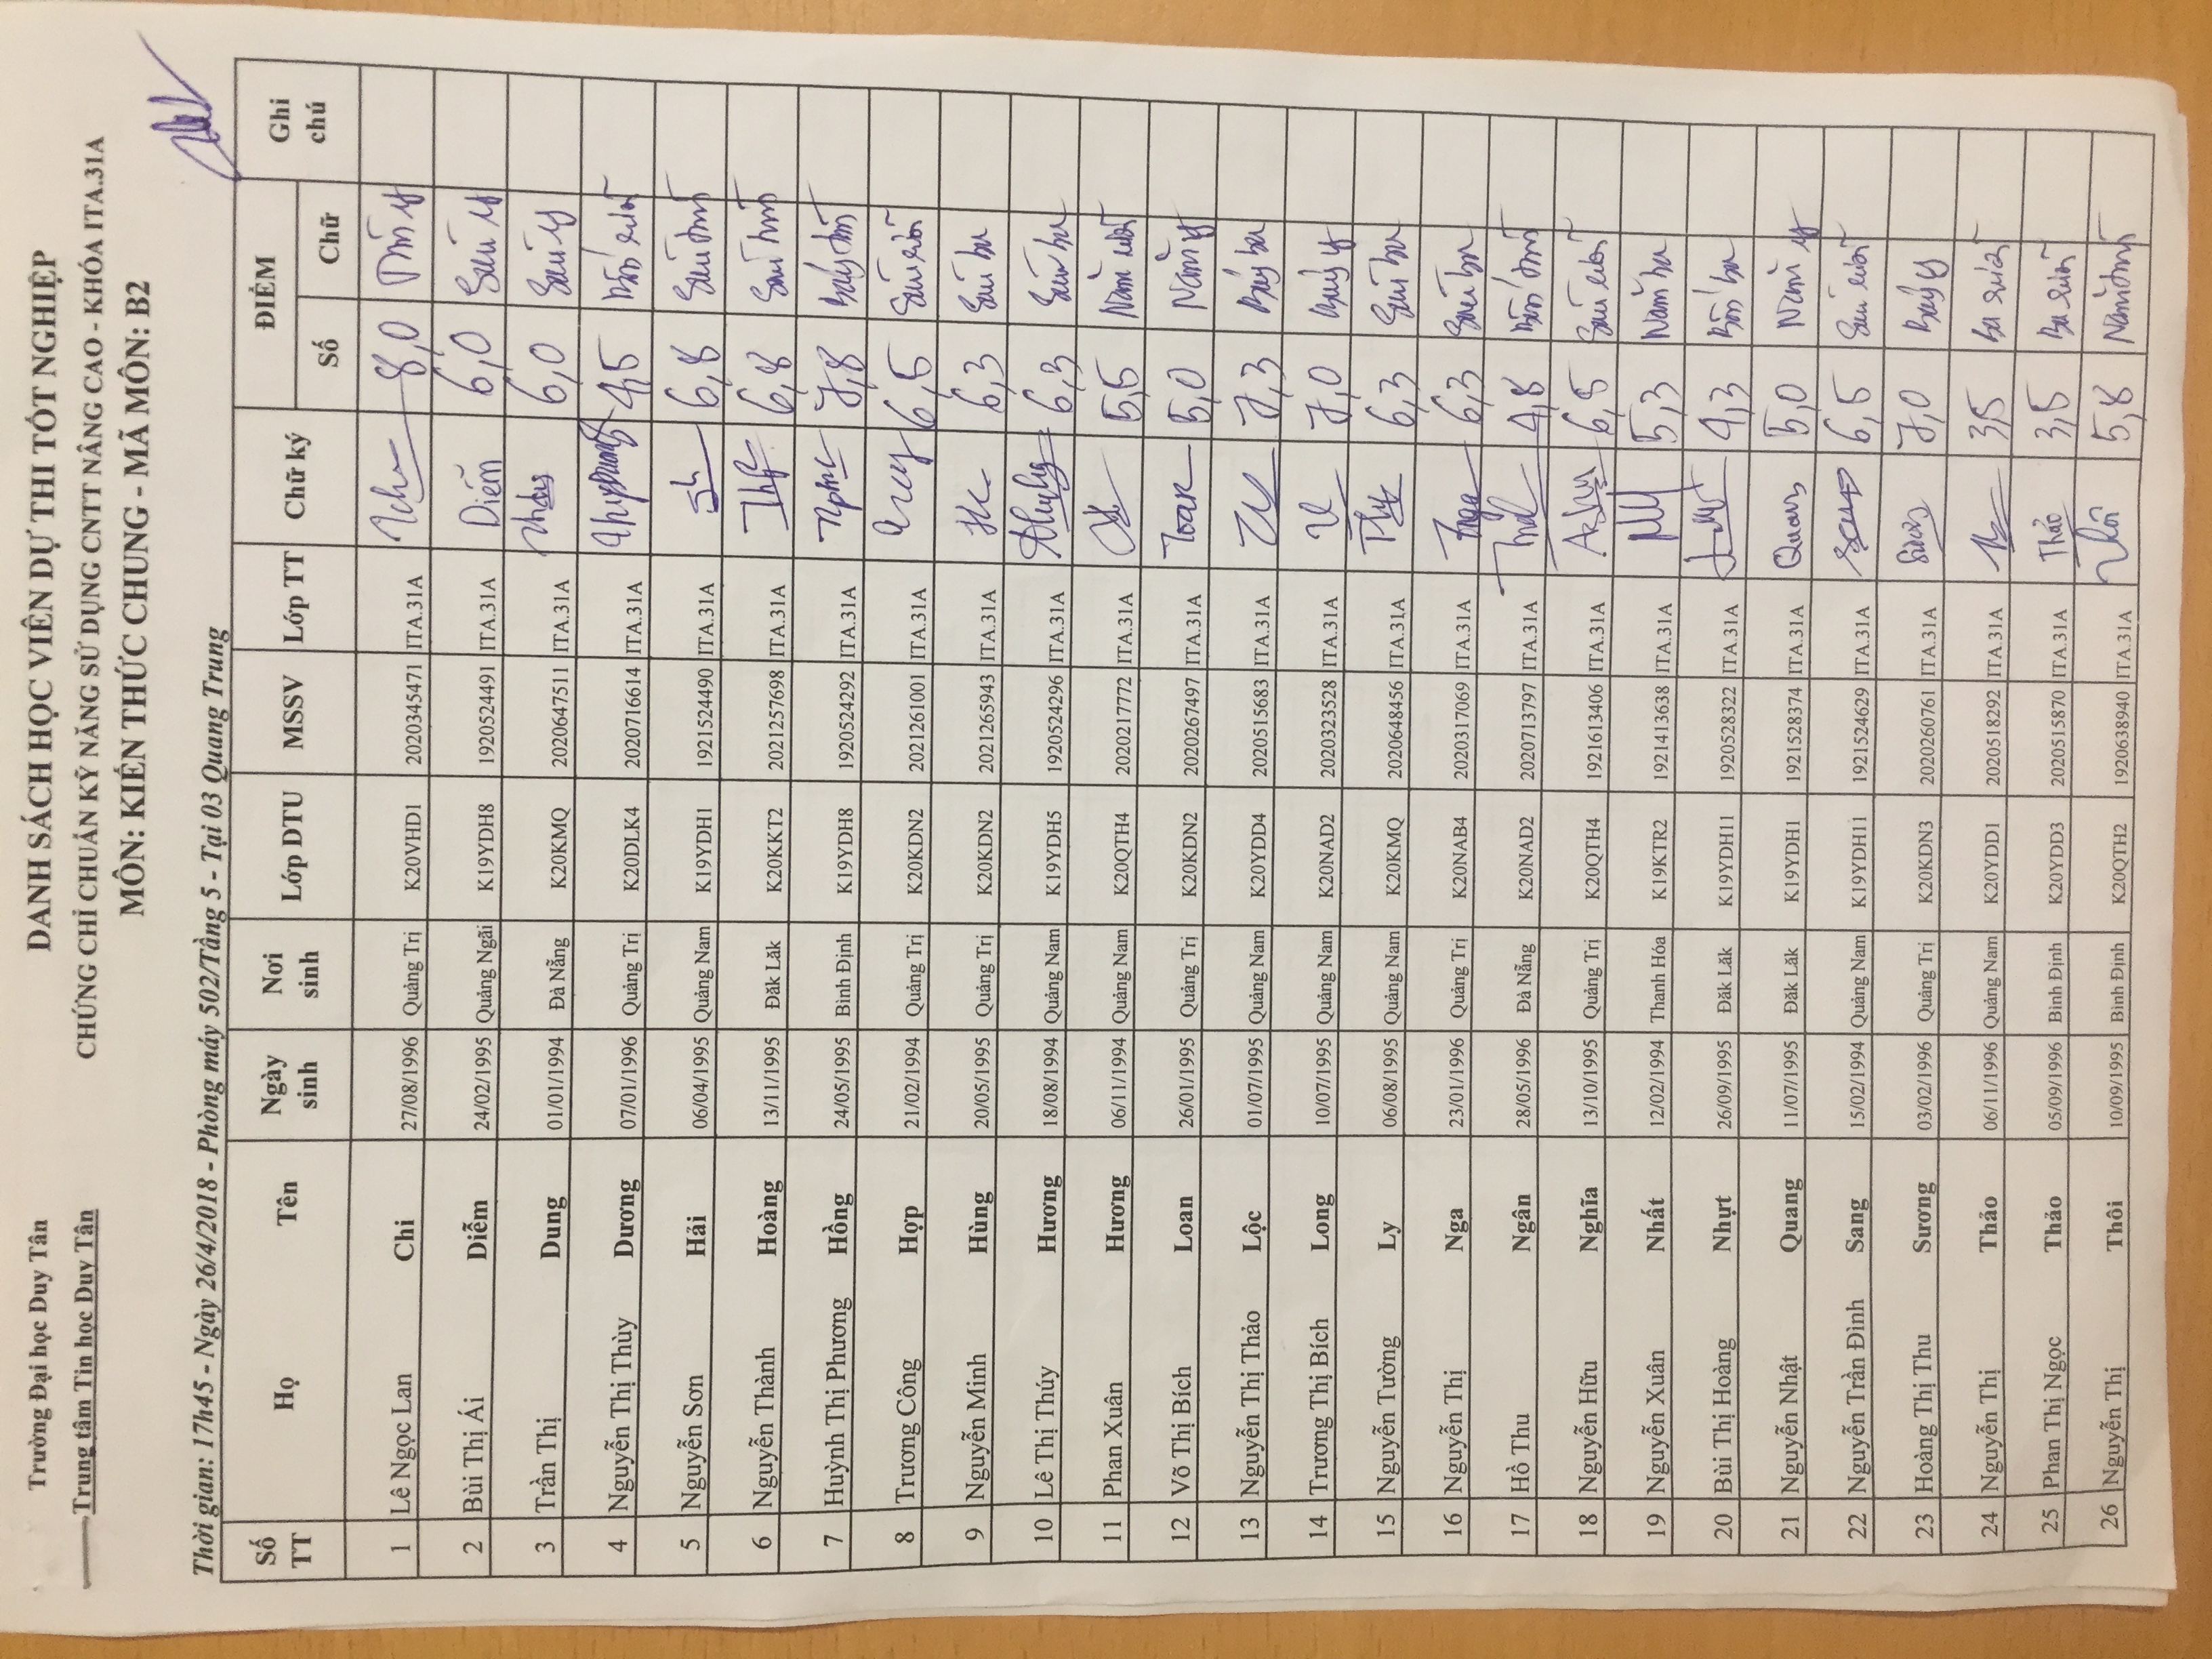 Trường Đại học Duy Tân
Trung tâm Tin học Duy Tân
DANH SÁCH HỌC VIÊN DỰ THI TỐT NGHIỆP
CHỨNG CHỈ CHUẨN KỸ NĂNG SỬ DỤNG CNTT NÂNG CAO - KHÓA ITA.31A
MÔN: KIẾN THỨC CHUNG - MÃ MÔN: B2
Thời gian: 17h45 - Ngày 26/4/2018 - Phòng máy 502/Tầng 5 - Tại 03 Quang Trung
Số TT Họ Tên Ngày sinh Nơi sinh Lớp DTU MSSV Lớp TT Chữ ký ĐIỂM Ghi chú
Số Chữ
1 Lê Ngọc Lan Chi 27/08/1996 Quảng Trị K20VHD1 2020345471 ITA.31A 8,0
2 Bùi Thị Ái Diễm 24/02/1995 Quảng Ngãi K19YDH8 1920524491 ITA.31A Diễm 6,0 Sáu y
3 Trần Thị Dung 01/01/1994 Đà Nẵng K20KMQ 2020647511 ITA.31A 6,0 Sáu y
4 Nguyễn Thị Thùy Dương 07/01/1996 Quảng Trị K20DLK4 2020716614 ITA.31A 4,5 Bốn rưỡi
5 Nguyễn Sơn Hải 06/04/1995 Quảng Nam K19YDH1 1921524490 ITA.31A 6,8 Sáu tám
6 Nguyễn Thành Hoàng 13/11/1995 Đăk Lăk K20KKT2 2021257698 ITA.31A 6,8 Sáu tám
7 Huỳnh Thị Phương Hồng 24/05/1995 Bình Định K19YDH8 1920524292 ITA.31A 7,8 Bảy tám
8 Trương Công Hợp 21/02/1994 Quảng Trị K20KDN2 2021261001 ITA.31A 6,5 Sáu rưỡi
9 Nguyễn Minh Hùng 20/05/1995 Quảng Trị K20KDN2 2021265943 ITA.31A 6,3 Sáu ba
10 Lê Thị Thúy Hương 18/08/1994 Quảng Nam K19YDH5 1920524296 ITA.31A 6,3 Sáu ba
11 Phan Xuân Hương 06/11/1994 Quảng Nam K20QTH4 2020217772 ITA.31A 5,5 Năm rưỡi
12 Võ Thị Bích Loan 26/01/1995 Quảng Trị K20KDN2 2020267497 ITA.31A Loan 5,0 Năm y
13 Nguyễn Thị Thảo Lộc 01/07/1995 Quảng Nam K20YDD4 2020515683 ITA.31A 7,3 Bảy ba
14 Trương Thị Bích Long 10/07/1995 Quảng Nam K20NAD2 2020323528 ITA.31A 7,0 Bảy y
15 Nguyễn Tường Ly 06/08/1995 Quảng Nam K20KMQ 2020648456 ITA.31A 6,3 Sáu ba
16 Nguyễn Thị Nga 23/01/1996 Quảng Trị K20NAB4 2020317069 ITA.31A Nga 6,3 Sáu ba
17 Hồ Thu Ngân 28/05/1996 Đà Nẵng K20NAD2 2020713797 ITA.31A 4,8 Bốn tám
18 Nguyễn Hữu Nghĩa 13/10/1995 Quảng Trị K20QTH4 1921613406 ITA.31A 6,5 Sáu rưỡi
19 Nguyễn Xuân Nhất 12/02/1994 Thanh Hóa K19KTR2 1921413638 ITA.31A 5,3 Năm ba
20 Bùi Thị Hoàng Nhựt 26/09/1995 Đăk Lăk K19YDH11 1920528322 ITA.31A 4,3 Bốn ba
21 Nguyễn Nhật Quang 11/07/1995 Đăk Lăk K19YDH1 1921528374 ITA.31A Quang 5,0 Năm y
22 Nguyễn Trần Đình Sang 15/02/1994 Quảng Nam K19YDH11 1921524629 ITA.31A 6,5 Sáu rưỡi
23 Hoàng Thị Thu Sương 03/02/1996 Quảng Trị K20KDN3 2020260761 ITA.31A 7,0 Bảy y
24 Nguyễn Thị Thảo 06/11/1996 Quảng Nam K20YDD1 2020518292 ITA.31A 3,5 Ba rưỡi
25 Phan Thị Ngọc Thảo 05/09/1996 Bình Định K20YDD3 2020515870 ITA.31A Thảo 3,5 Ba rưỡi
26 Nguyễn Thị Thôi 10/09/1995 Bình Định K20QTH2 1920638940 ITA.31A 5,8 Năm tám